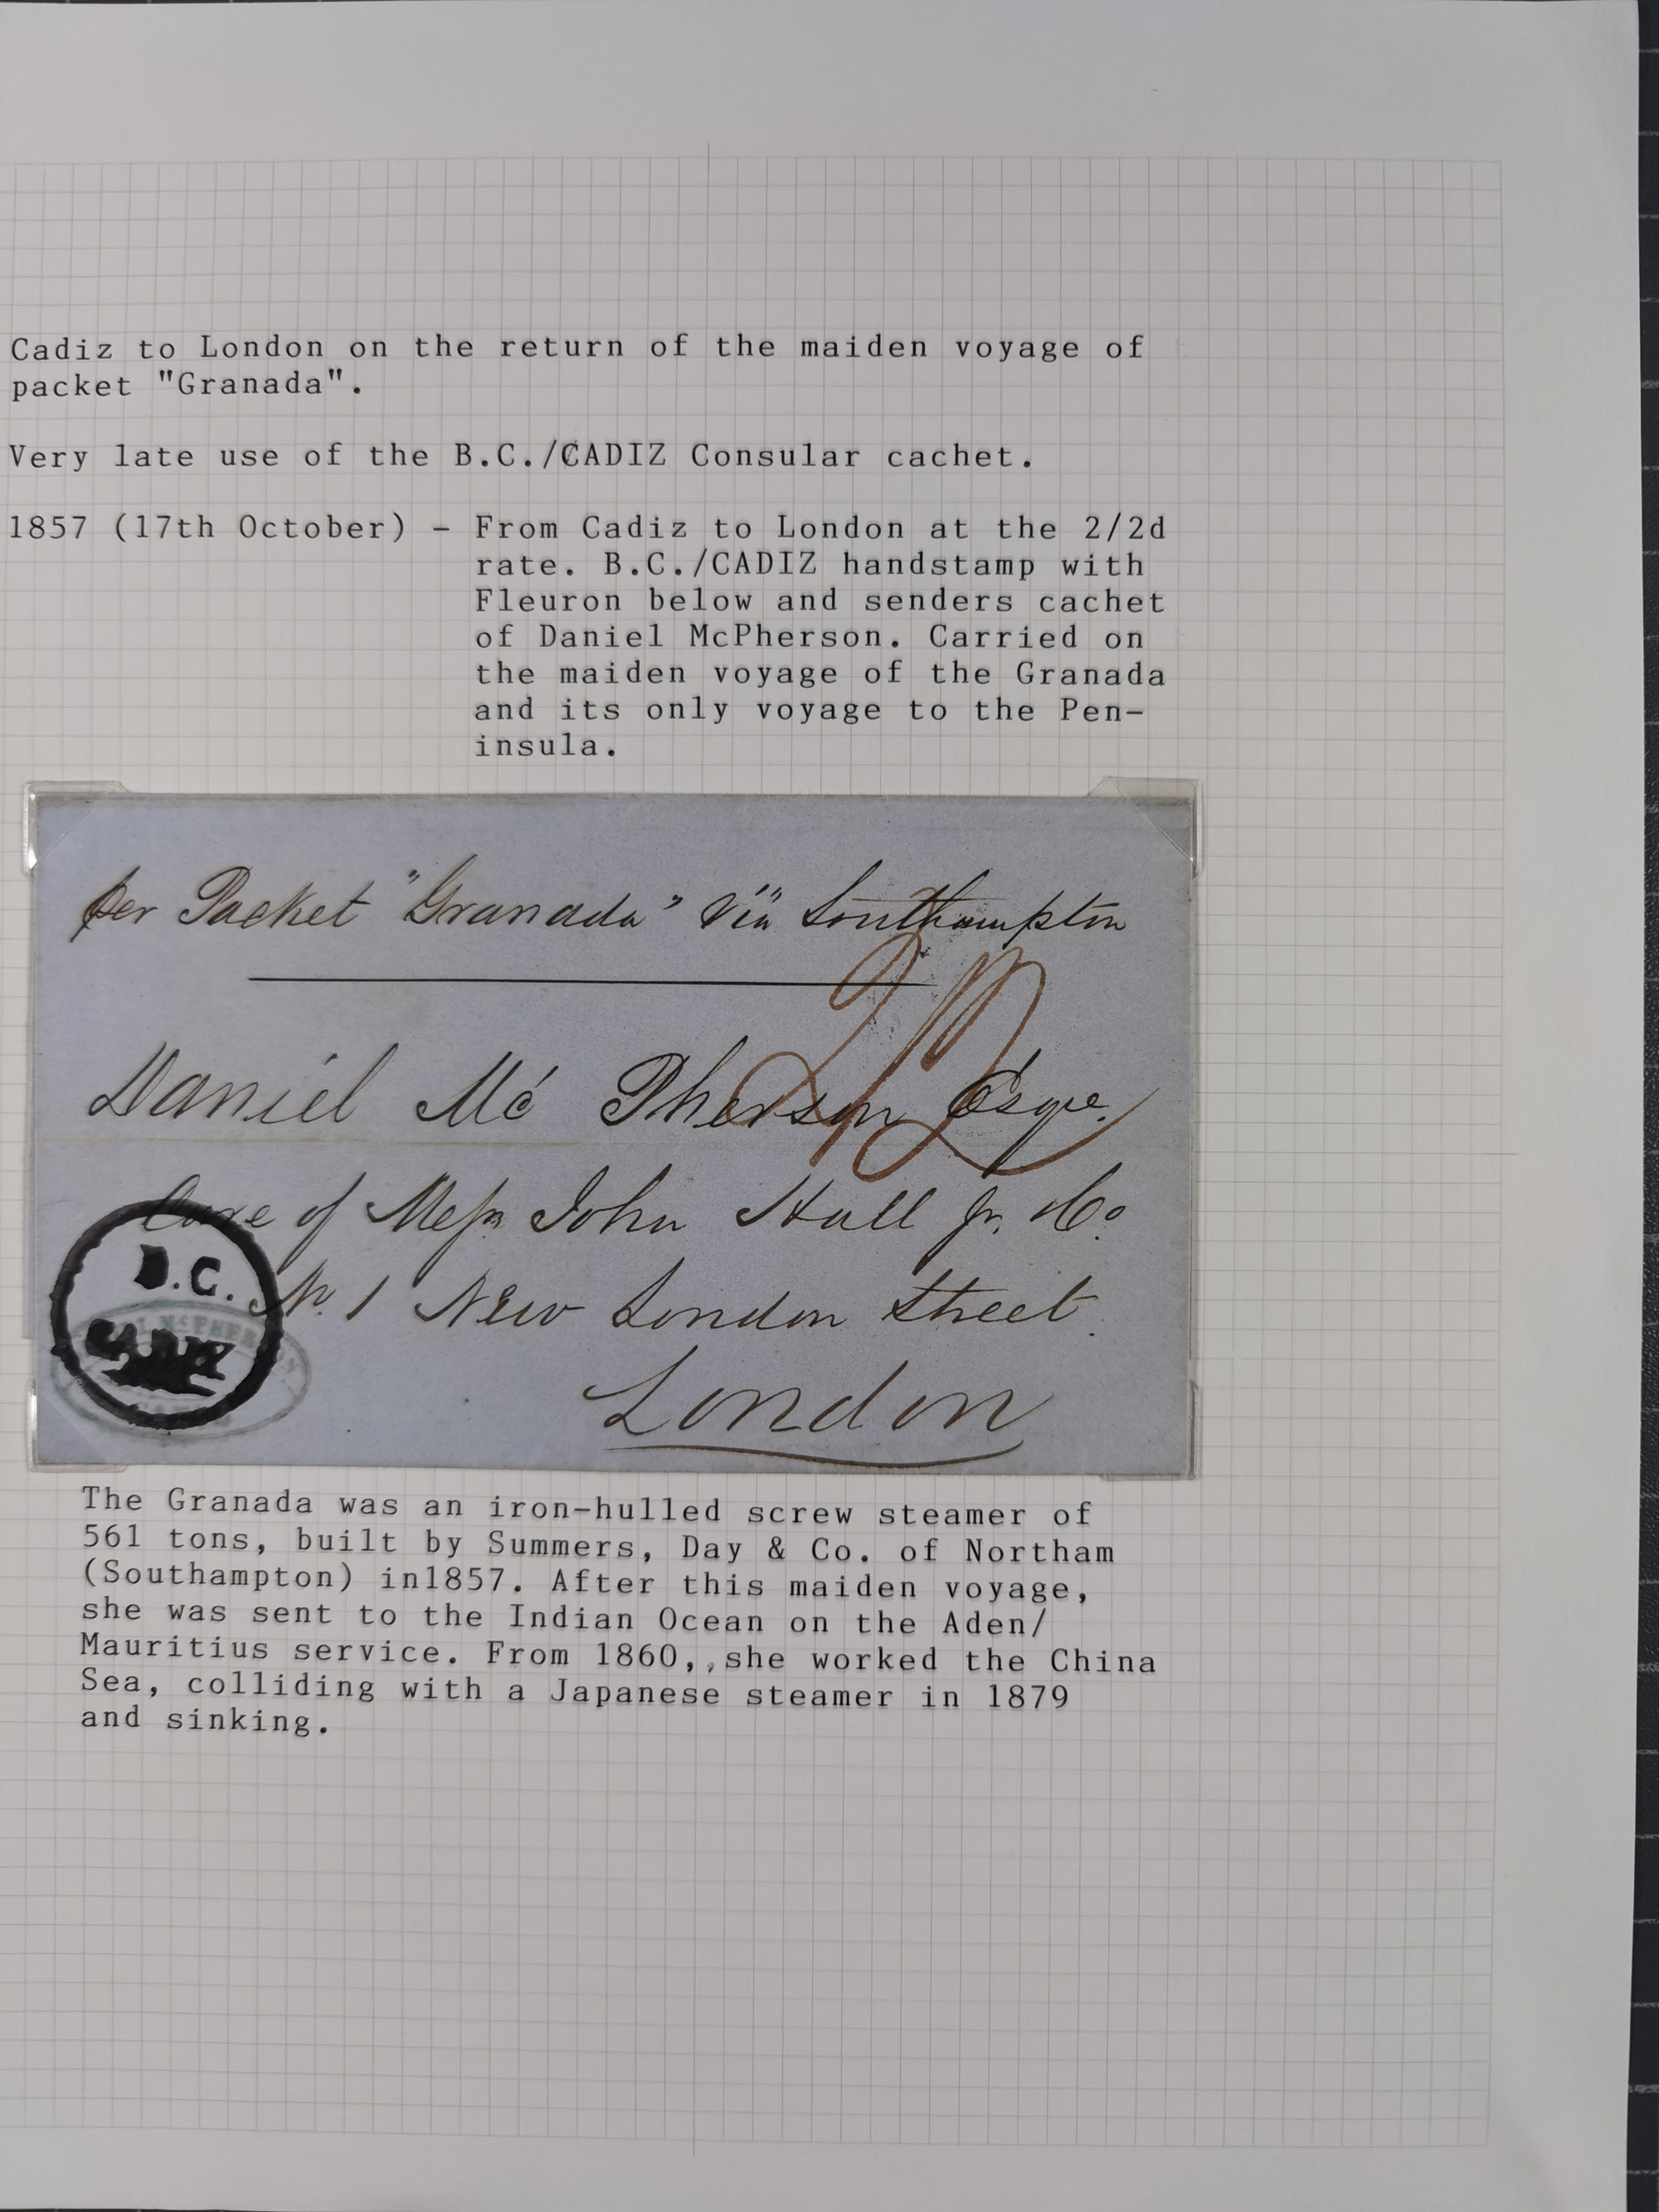 Cadiz to London on the return of the maiden voyage of
packet "Granada".
Very late use of the B.C./CADIZ Consular cachet.
1857 (17th October) - From Cadiz to London at the 2/2d
rate. B.C./CADIZ handstamp with
Fleuron below and senders cachet
of Daniel McPherson. Carried on
the maiden voyage of the Granada
and its only voyage to the Pen-
insula.
per Packet "Granada" viä Southampton
Daniel Mc Pherson Esqre.
Care of Messrs John Hall Jr. & Co.
No. 1 New London Street.
London
B.C.
CADIZ
The Granada was an iron-hulled screw steamer of
561 tons, built by Summers, Day & Co. of Northam
(Southampton) in1857. After this maiden voyage,
she was sent to the Indian Ocean on the Aden/
Mauritius service. From 1860,,she worked the China
Sea, colliding with a Japanese steamer in 1879
and sinking.